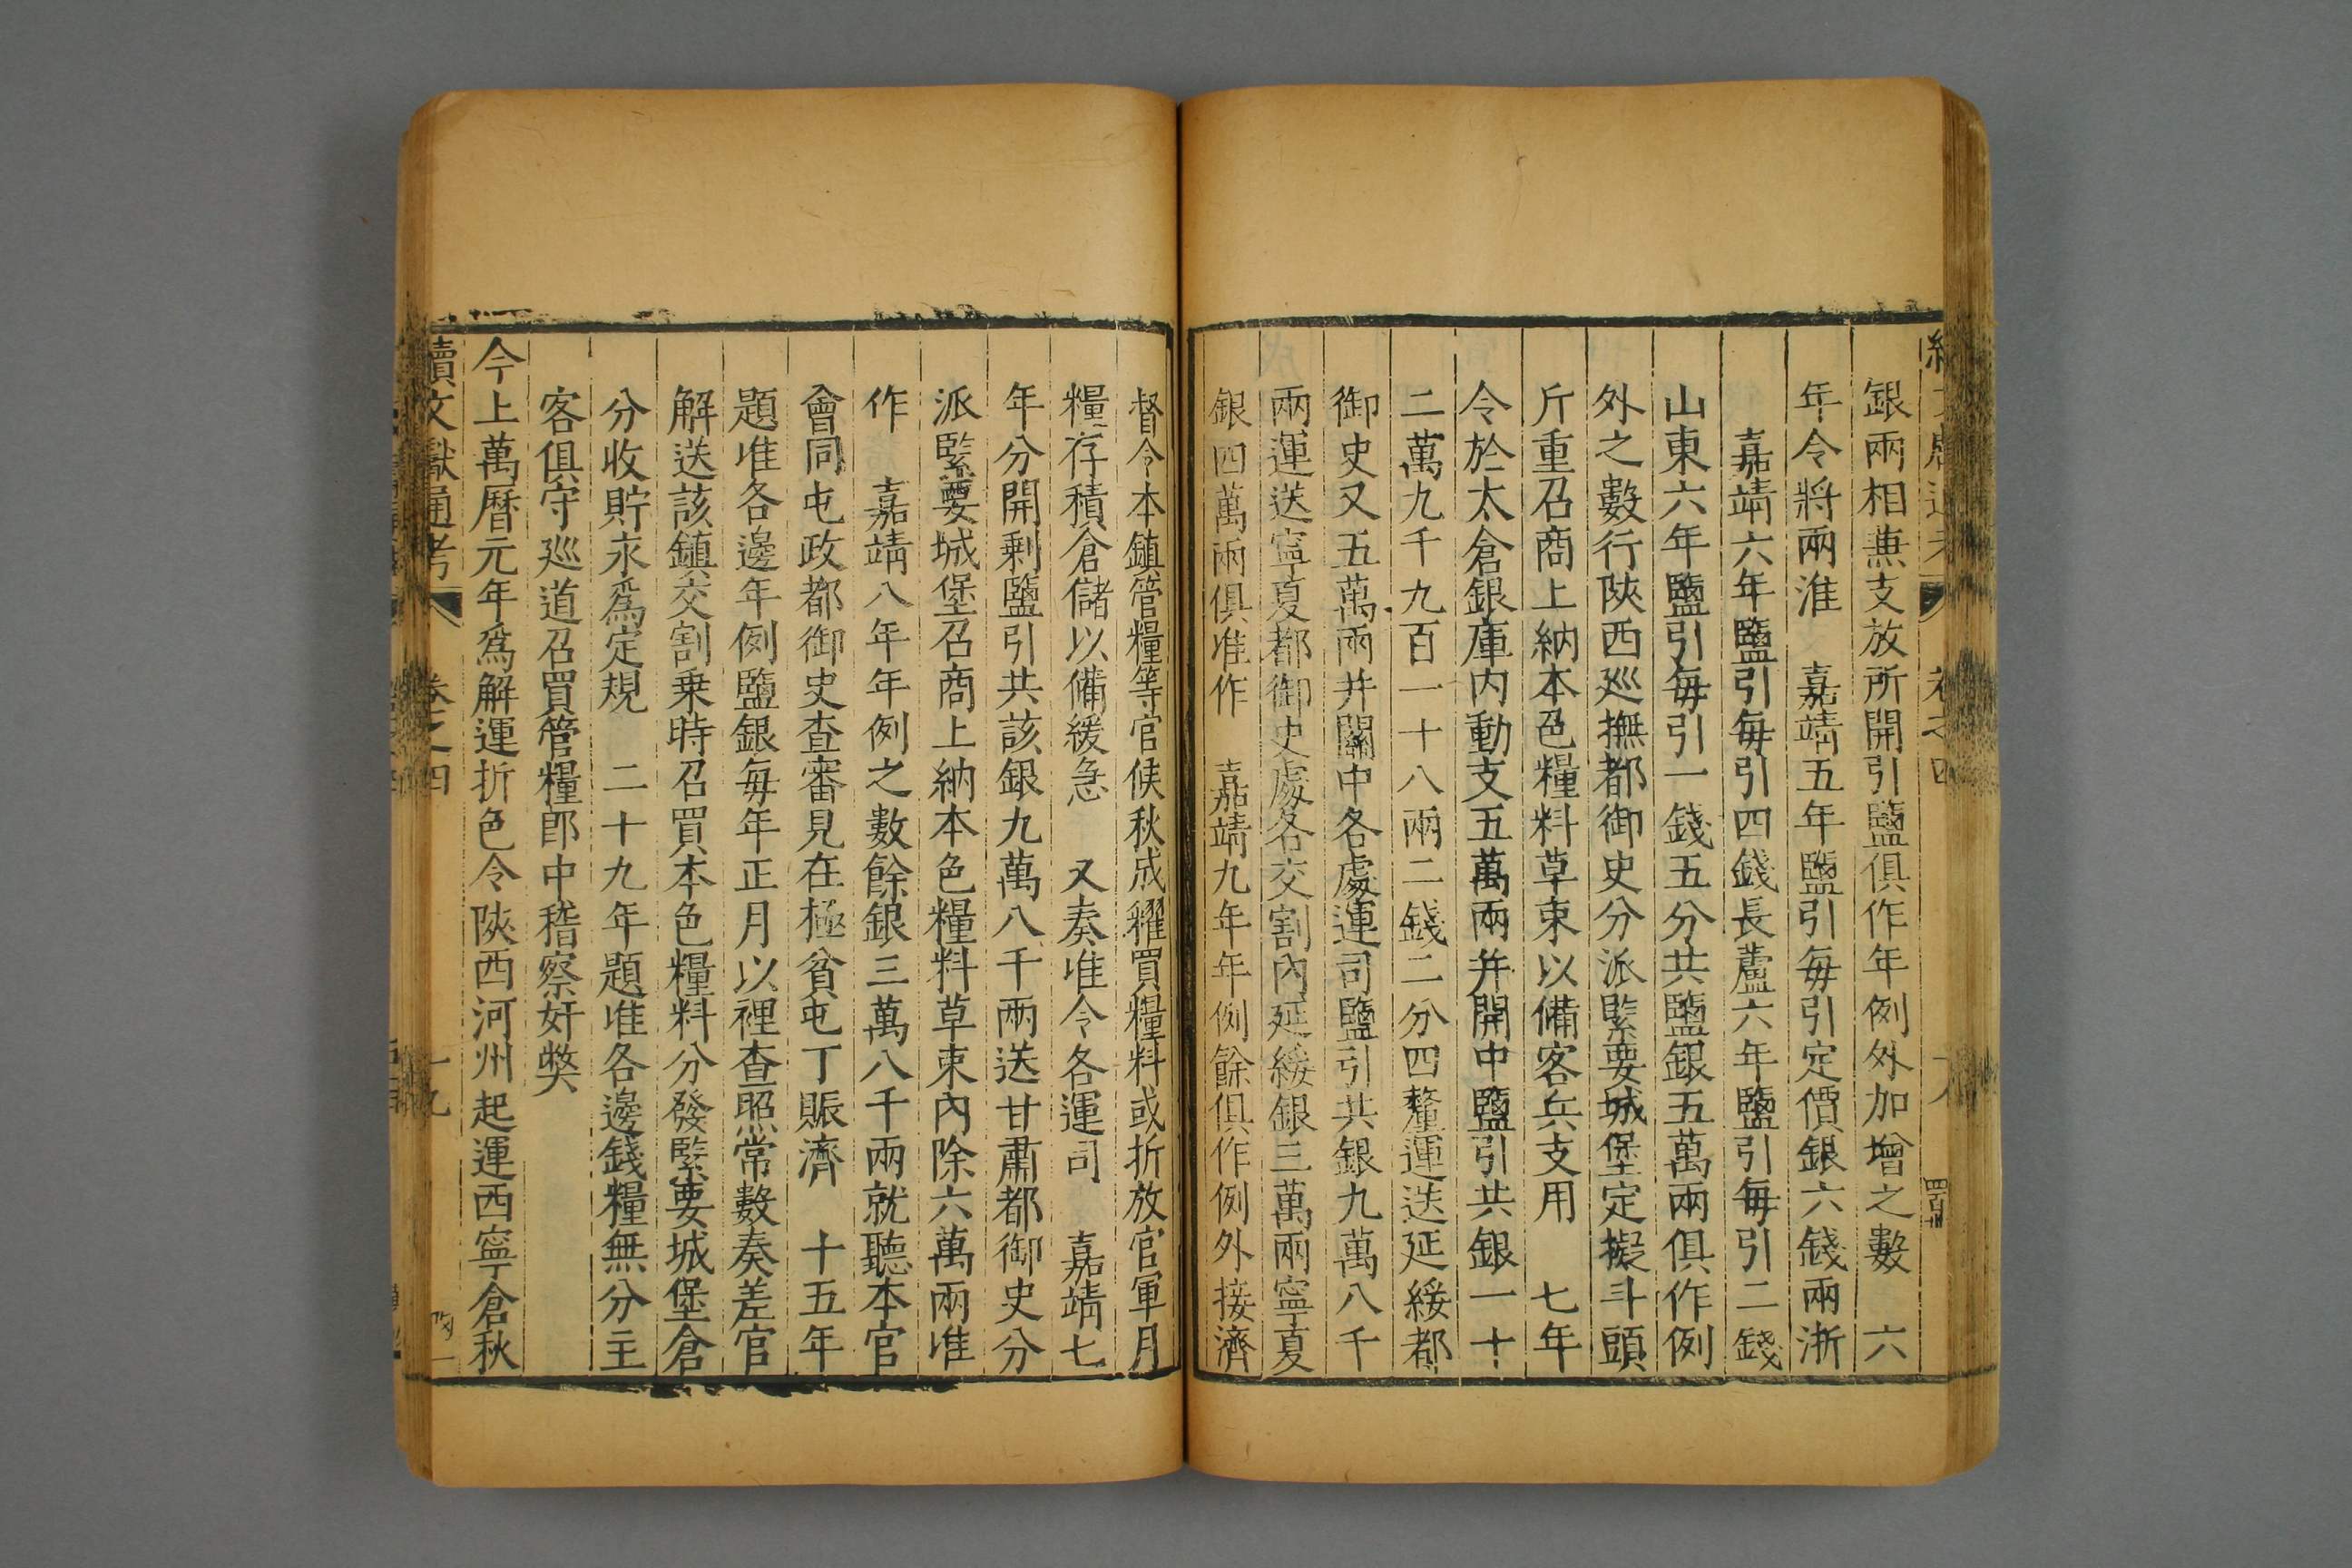 銀兩相兼支放所開引鹽俱作年例外加增之數　六
年令將兩淮　嘉靖五年鹽引每引定價銀六錢兩浙
嘉靖六年鹽引每引四錢長蘆六年鹽引每引二錢
山東六年鹽引每引一錢五分共鹽銀五萬兩俱作例
外之數行陝西巡撫都御史分派緊要城堡定擬斗頭
斤重召商上納本色糧料草束以備客兵支用　七年
令於太倉銀庫內動支五萬兩并開中鹽引共銀一十
二萬九千九百一十八兩二錢二分四釐運送延綏都
御史又五萬兩并關中各處運司鹽引共銀九萬八千
兩運送寧夏都御史處各交割內延綏銀三萬兩寧夏
銀四萬兩俱准作　嘉靖九年年例餘俱作例外接濟
督令本鎮管糧等官候秋成糴買糧料或折放官軍月
糧存積倉儲以備緩急　又奏准令各運司　嘉靖七
年分開剩鹽引共該銀九萬八千兩送甘肅都御史分
派緊要城堡召商上納本色糧料草束內除六萬兩准
作　嘉靖八年年例之數餘銀三萬八千兩就聽本官
會同屯政都御史查審見在極貧屯丁賑濟　十五年
題准各邊年例鹽銀每年正月以裡查照常數奏差官
解送該鎮交割乗時召買本色糧料分發緊要城堡倉
分收貯永爲定規　二十九年題准各邊錢糧無分主
客俱守巡道召買管糧郎中稽察奸獘
今上萬曆元年爲解運折色令陝西河州起運西寧倉秋
續文獻通考　卷之四　十九